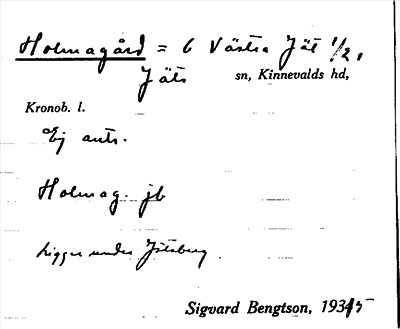 Holmagård = 6 Västra Jät 1/2,
Jäts sn, Kinnevalds hd,
Kronob. l.
Ej ant.
Holmag. jb
Ligger under Jätsberg.
Sigvard Bengtson, 1934/5